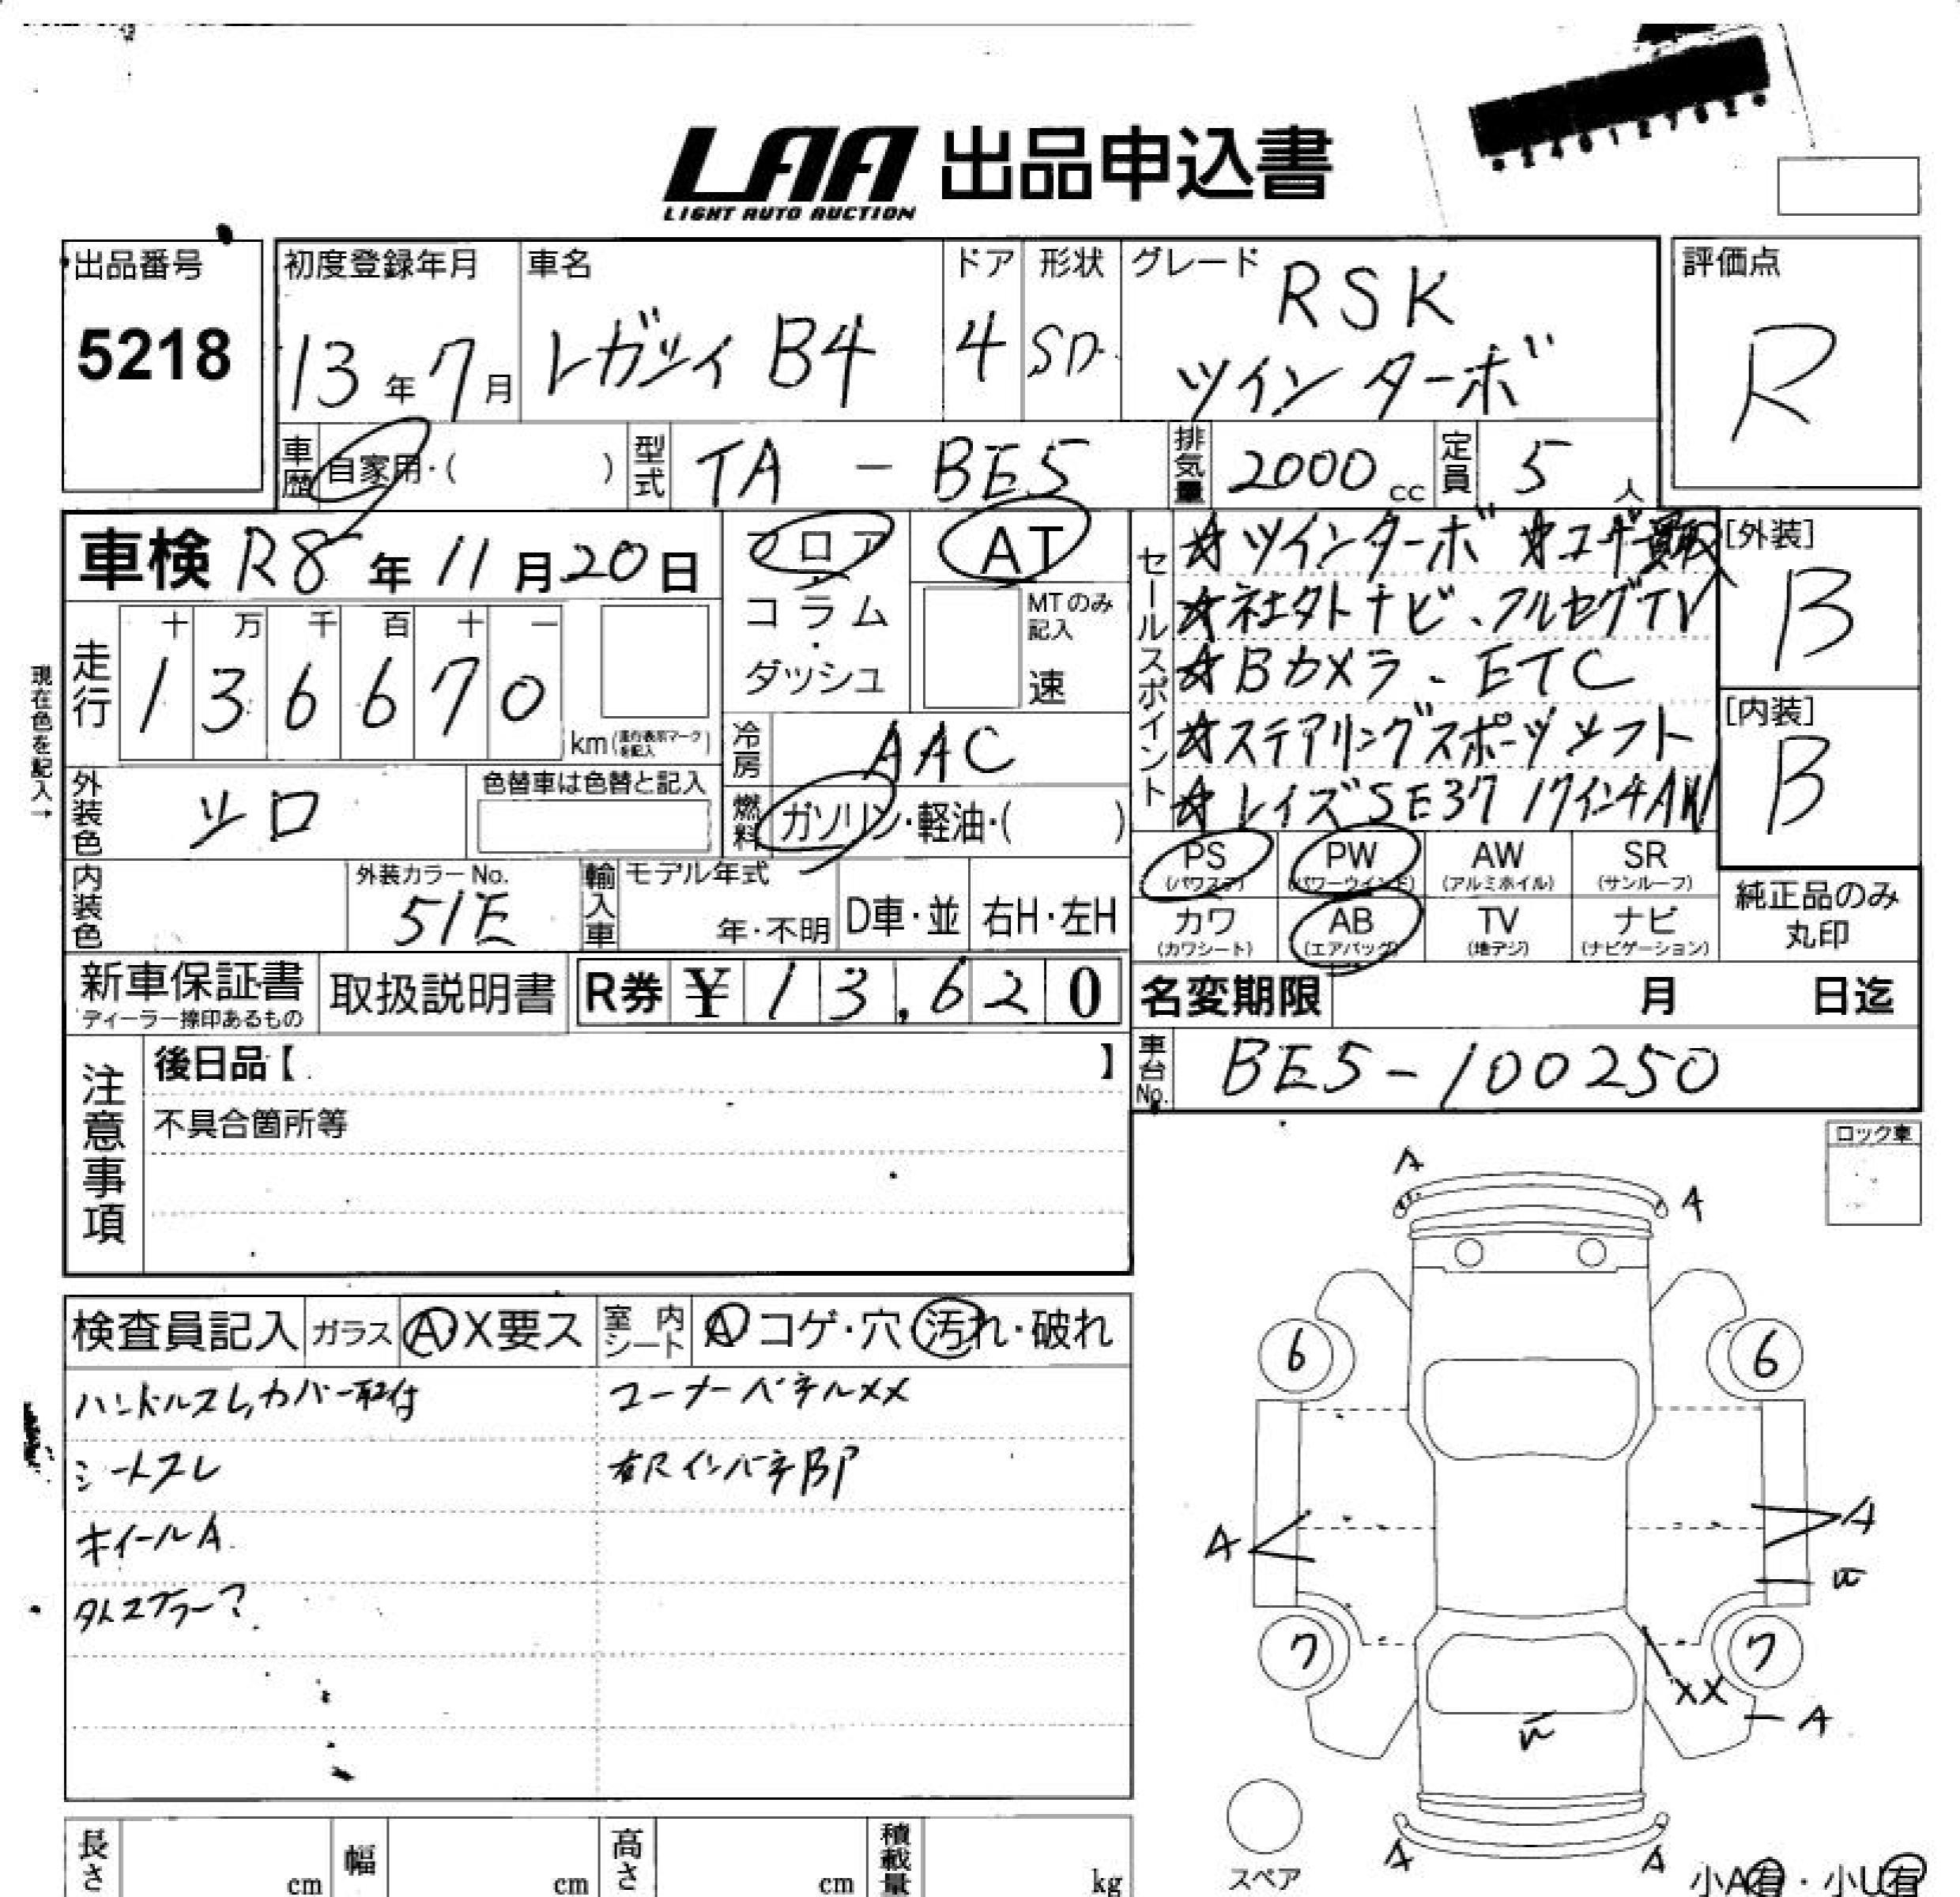 LAA 出品申込書
LIGHT AUTO AUCTION
出品番号
5218
初度登録年月
13年7月
車名
レガシィ B4
ドア
4
形状
SD
グレード
RSK
ツインターボ
評価点
R
車歴 自家用・( )
型式 TA - BE5
排気量 2000 cc
定員 5 人
車検 R8年11月20日
フロア・コラム・ダッシュ
AT
MTのみ記入
速
現在色を記入→
走行
十 万 千 百 十 一
1 3 6 6 7 0
km(走行表示マークを記入)
冷房 AAC
燃料 ガソリン・軽油・( )
外装色 シロ
色替車は色替と記入
内装色
外装カラーNo.
51E
輸入車
モデル年式
年・不明
D車・並
右H・左H
セールスポイント
☆ツインターボ ☆ユーザー買取
☆社外ナビ、フルセグTV
☆Bカメラ、ETC
☆ステアリングスポーツシフト
☆レイズSE37 17インチAW
[外装]
B
[内装]
B
PS (パワステ)
PW (パワーウインド)
AW (アルミホイル)
SR (サンルーフ)
カワ (カワシート)
AB (エアバッグ)
TV (地デジ)
ナビ (ナビゲーション)
純正品のみ
丸印
新車保証書
ディーラー捺印あるもの
取扱説明書
R券 ¥ 13,620
名変期限 月 日迄
車台No. BE5-100250
注意事項
後日品【 】
不具合箇所等
ロック車
検査員記入
ガラス A X 要ス
室内シート A コゲ・穴・汚れ・破れ
ハンドルスレ,カバー取付
コーナーパネルXX
シートスレ
右Rインパネ BP
ホイールA
外スプラー?
A
A
6
6
A
A
7
7
XX
A
A
A
スペア
小A有・小U有
長さ cm
幅 cm
高さ cm
積載量 kg